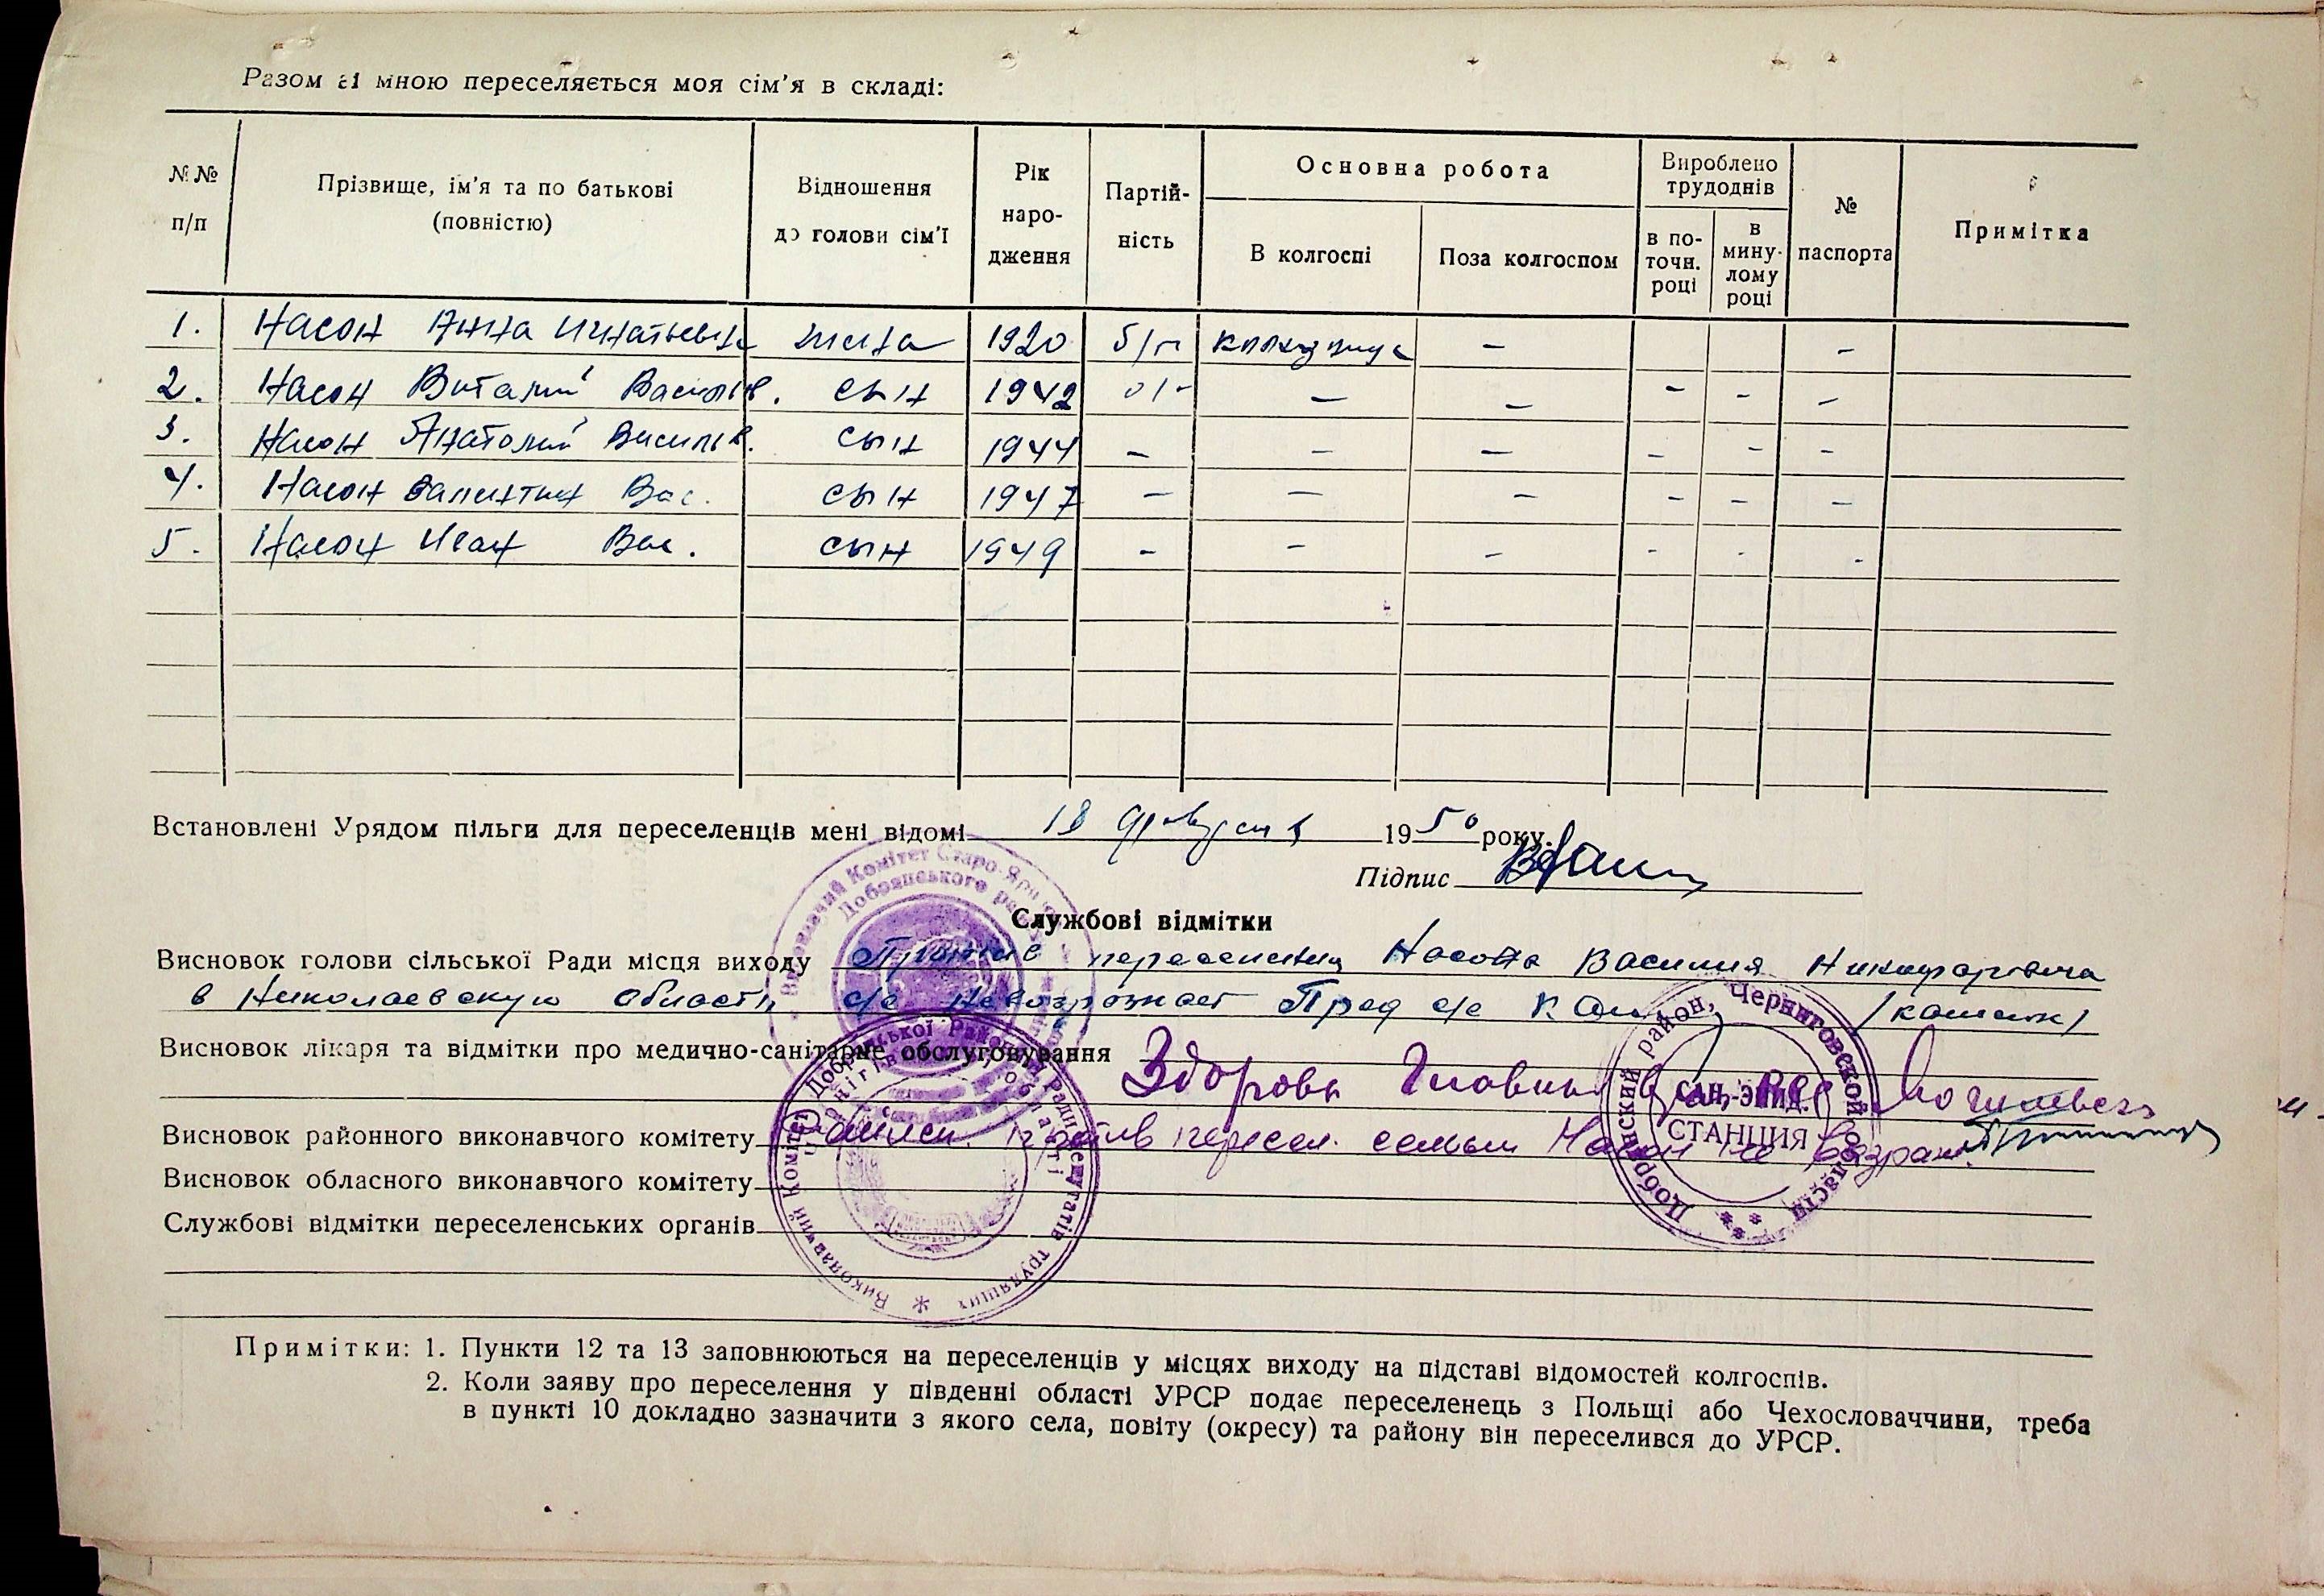 Разом зі мною переселяється моя сім'я в складі:
№№ п/п
Прізвище, ім'я та по батькові (повністю)
Відношення до голови сім'ї
Рік народження
Партійність
Основна робота
В колгоспі
Поза колгоспом
Вироблено трудоднів
в поточн. році
в минулому році
№ паспорта
Примітка
1. Насон Анна Игнатьевна жена 1920 б/п колхозница –
2. Насон Виталий Василів. сын 1942 – – – – –
3. Насон Анатолий Василів. сын 1944 – – – – – –
4. Насон Валентин Вас. сын 1947 – – – – – –
5. Насон Иван Вас. сын 1949 – – – – – –
Встановлені Урядом пільги для переселенців мені відомі 18 февраля 1950 року.
Підпис
Службові відмітки
Висновок голови сільської Ради місця виходу Против переселения Насона Василия Никифоровича
в Николаевскую область с/с не возражает Пред с/с
Висновок лікаря та відмітки про медично-санітарне обслуговування
Здоровы
Висновок районного виконавчого комітету против пересел. семьи Насон не возраж.
Висновок обласного виконавчого комітету
Службові відмітки переселенських органів
Виконавчий Комітет Старо-
Добрянського району
Виконавчий Комітет Добрянської Районної Ради депутатів трудящих
Чернігівської області
Добрянский район, Черниговской области
САН.-ЭПИД.
СТАНЦИЯ
Примітки: 1. Пункти 12 та 13 заповнюються на переселенців у місцях виходу на підставі відомостей колгоспів.
2. Коли заяву про переселення у південні області УРСР подає переселенець з Польщі або Чехословаччини, треба
в пункті 10 докладно зазначити з якого села, повіту (окресу) та району він переселився до УРСР.